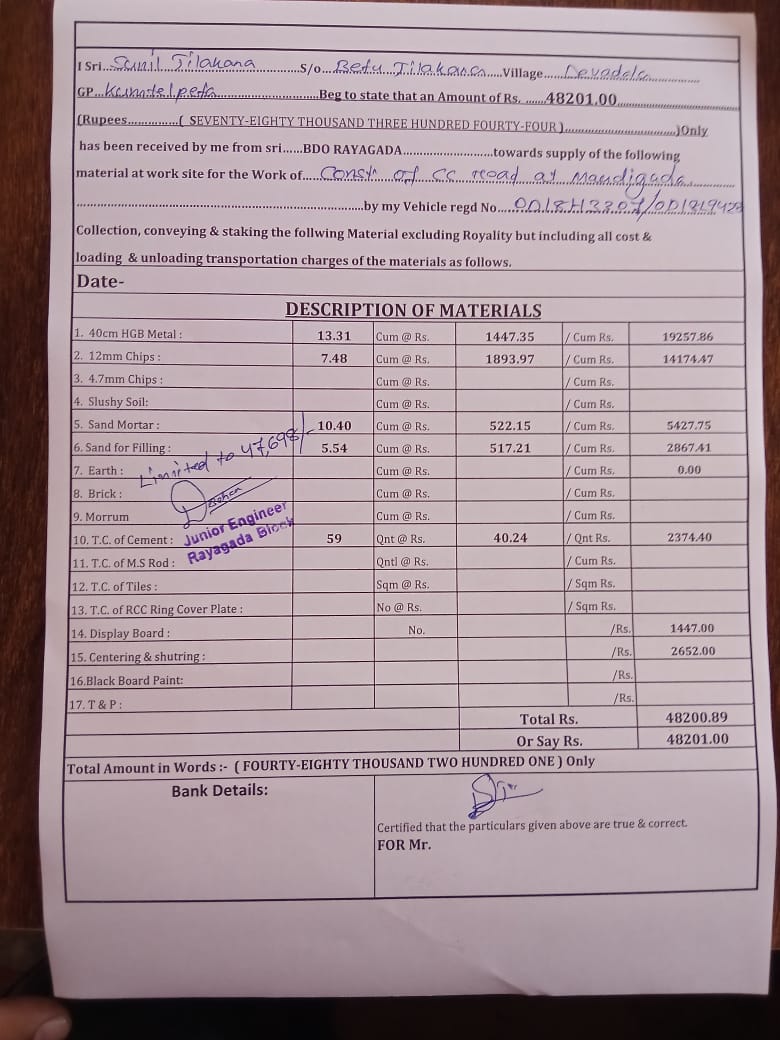 I Sri...Sunil Jilakara..........S/o...Betu Jilakara.....Village.......Devadala..............
GP...Kumtelpeta..........................Beg to state that an Amount of Rs. ......48201.00..............................
(Rupees..............( SEVENTY-EIGHTY THOUSAND THREE HUNDRED FOURTY-FOUR )..............................)Only
has been received by me from sri......BDO RAYAGADA.........................towards supply of the following
material at work site for the Work of....Constr. of CC road at Mandigada..............
..................................................................by my Vehicle regd No....OD18H3307/OD18L9428
Collection, conveying & staking the follwing Material excluding Royality but including all cost &
loading & unloading transportation charges of the materials as follows.
Date-
DESCRIPTION OF MATERIALS
1. 40cm HGB Metal : 13.31 Cum @ Rs. 1447.35 / Cum Rs. 19257.86
2. 12mm Chips : 7.48 Cum @ Rs. 1893.97 / Cum Rs. 14174.47
3. 4.7mm Chips : Cum @ Rs. / Cum Rs.
4. Slushy Soil: Cum @ Rs. / Cum Rs.
5. Sand Mortar : 10.40 Cum @ Rs. 522.15 / Cum Rs. 5427.75
6. Sand for Filling : 5.54 Cum @ Rs. 517.21 / Cum Rs. 2867.41
7. Earth : Cum @ Rs. / Cum Rs. 0.00
Limited to 47,698/-
8. Brick : Cum @ Rs. / Cum Rs.
9. Morrum Cum @ Rs. / Cum Rs.
Junior Engineer
Rayagada Block
10. T.C. of Cement : 59 Qnt @ Rs. 40.24 / Qnt Rs. 2374.40
11. T.C. of M.S Rod : Qntl @ Rs. / Cum Rs.
12. T.C. of Tiles : Sqm @ Rs. / Sqm Rs.
13. T.C. of RCC Ring Cover Plate : No @ Rs. / Sqm Rs.
14. Display Board : No. /Rs. 1447.00
15. Centering & shutring : /Rs. 2652.00
16.Black Board Paint: /Rs.
17. T & P : /Rs.
Total Rs. 48200.89
Or Say Rs. 48201.00
Total Amount in Words :- ( FOURTY-EIGHTY THOUSAND TWO HUNDRED ONE ) Only
Bank Details:
Certified that the particulars given above are true & correct.
FOR Mr.